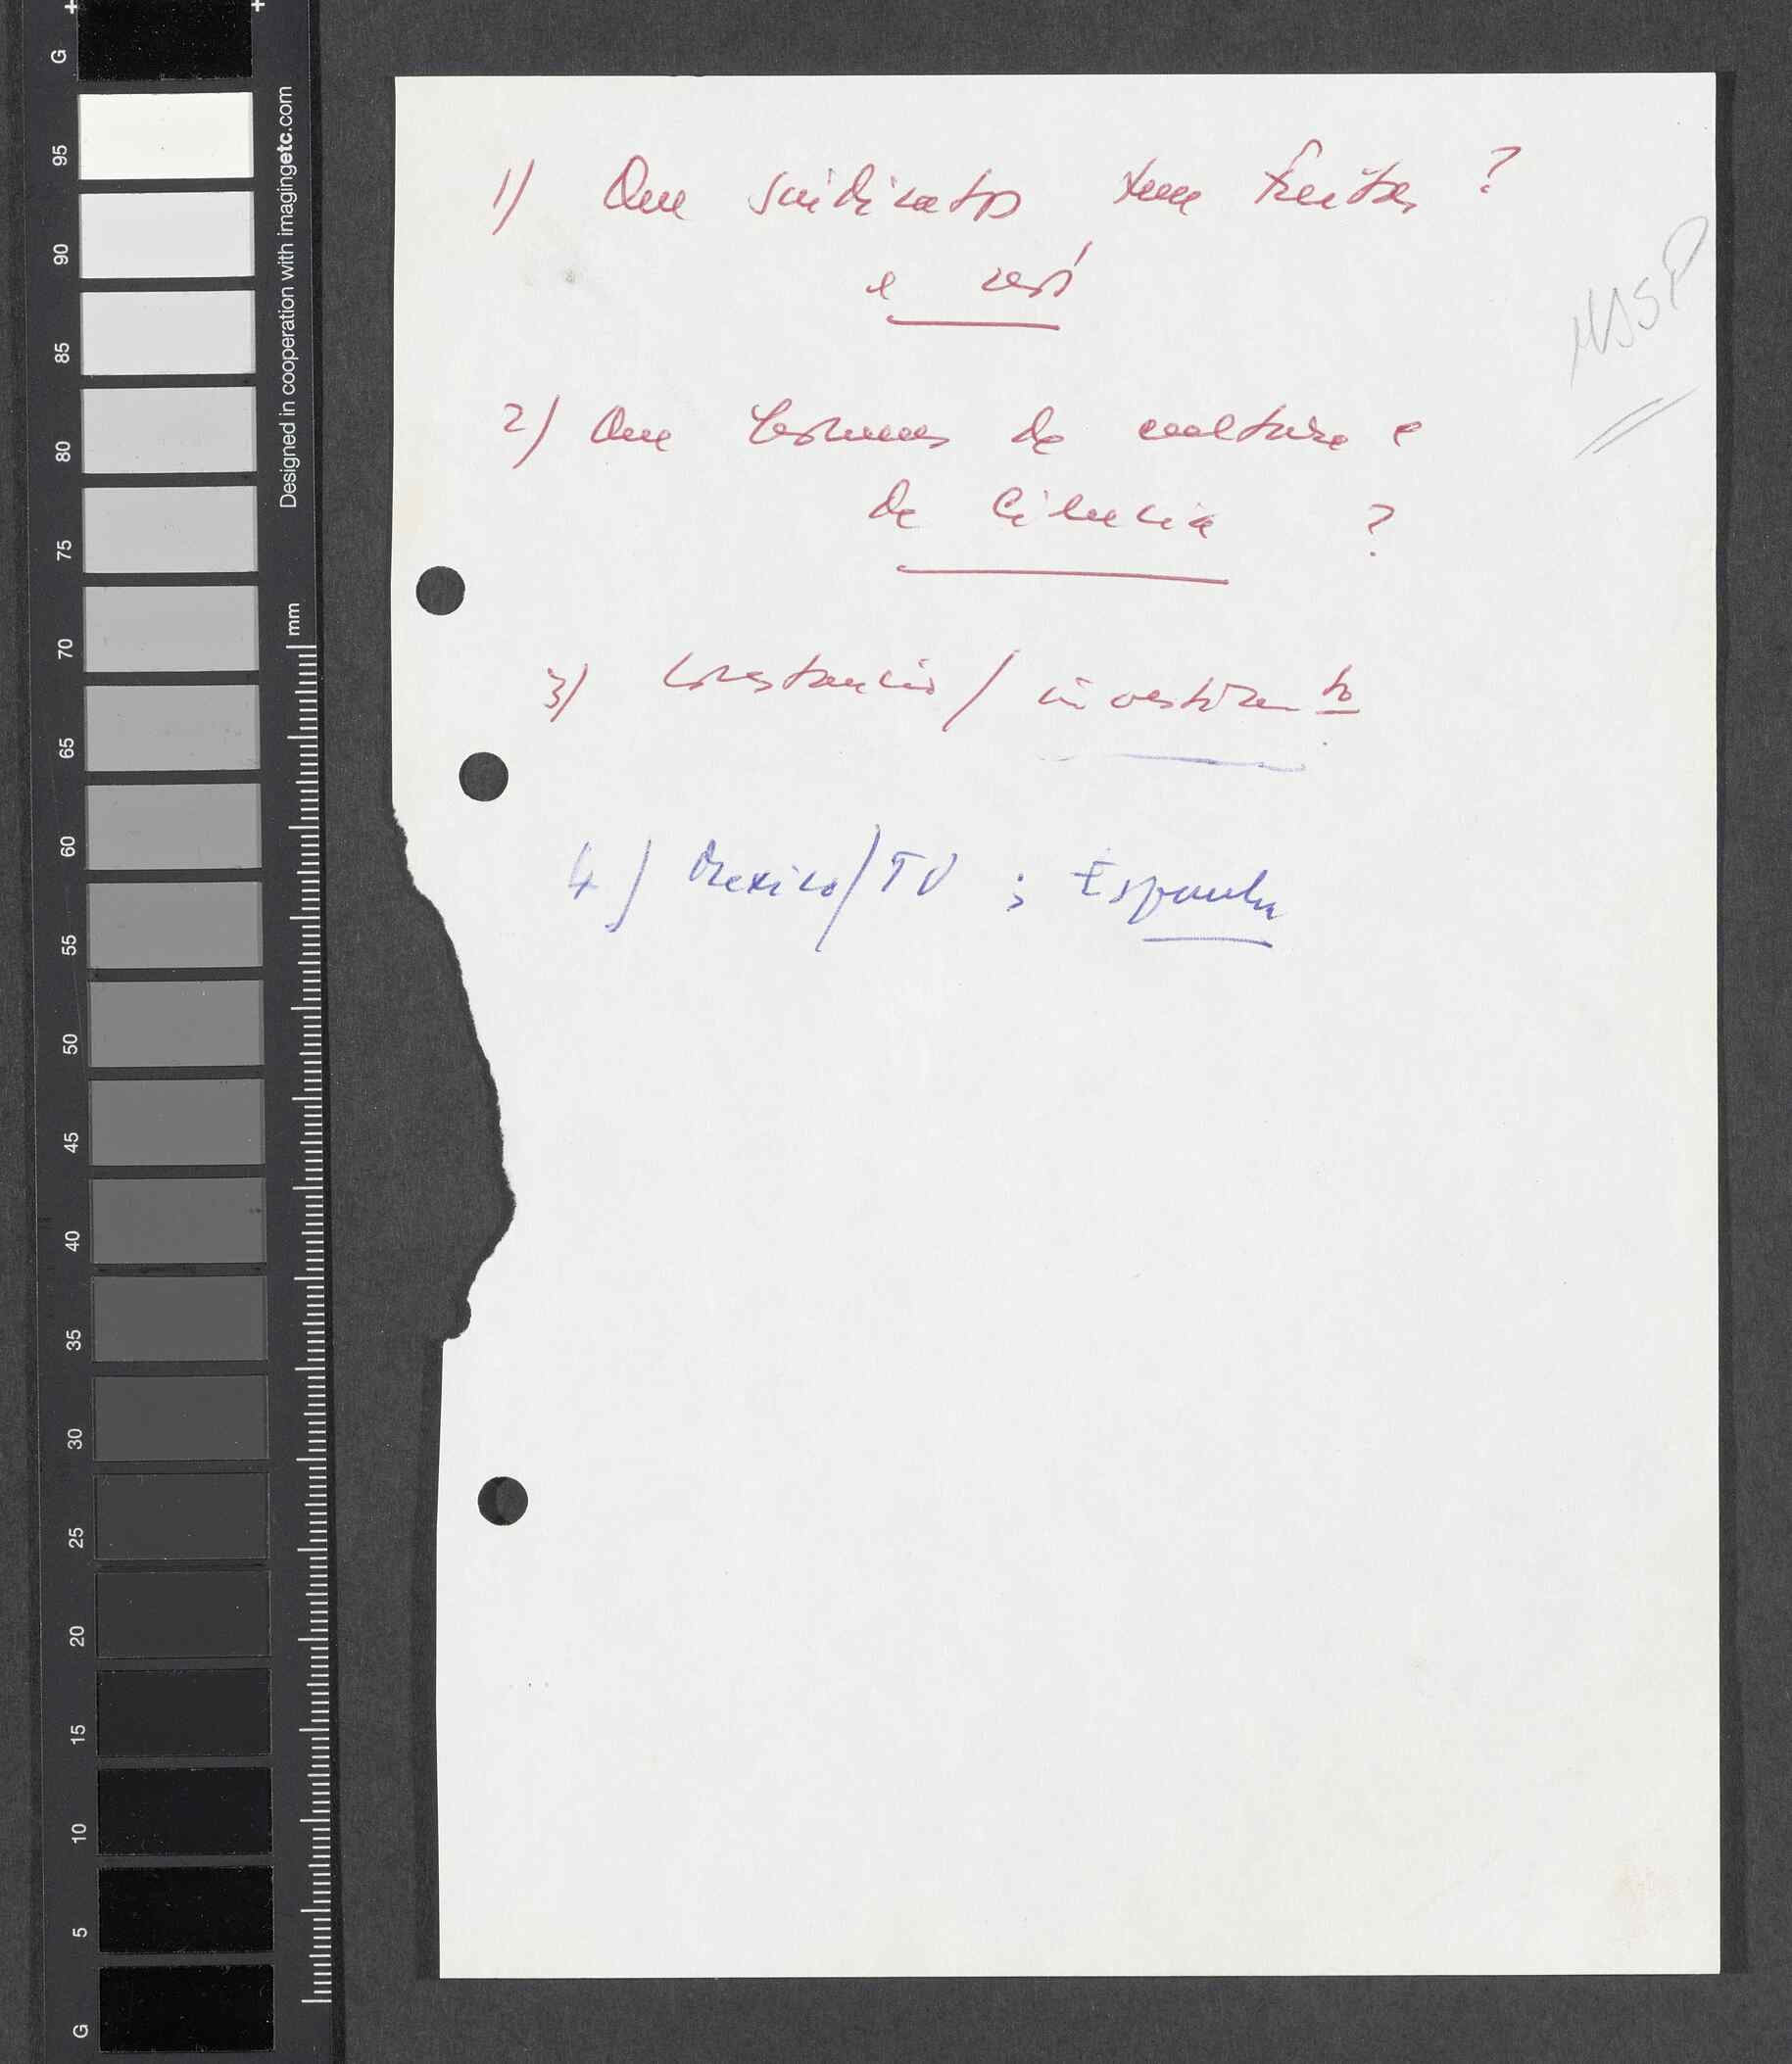 1) Que sindicatos tem Freitas ?
e
MSSP
2) Que homens de cultura e
de Ciência ?
3) Constancio / investimento
4) Mexico/TV ; Espanha
G
95
90
85
80
75
70
65
60
55
50
45
40
35
30
25
20
15
10
5
G
mm
Designed in cooperation with imagingetc.com